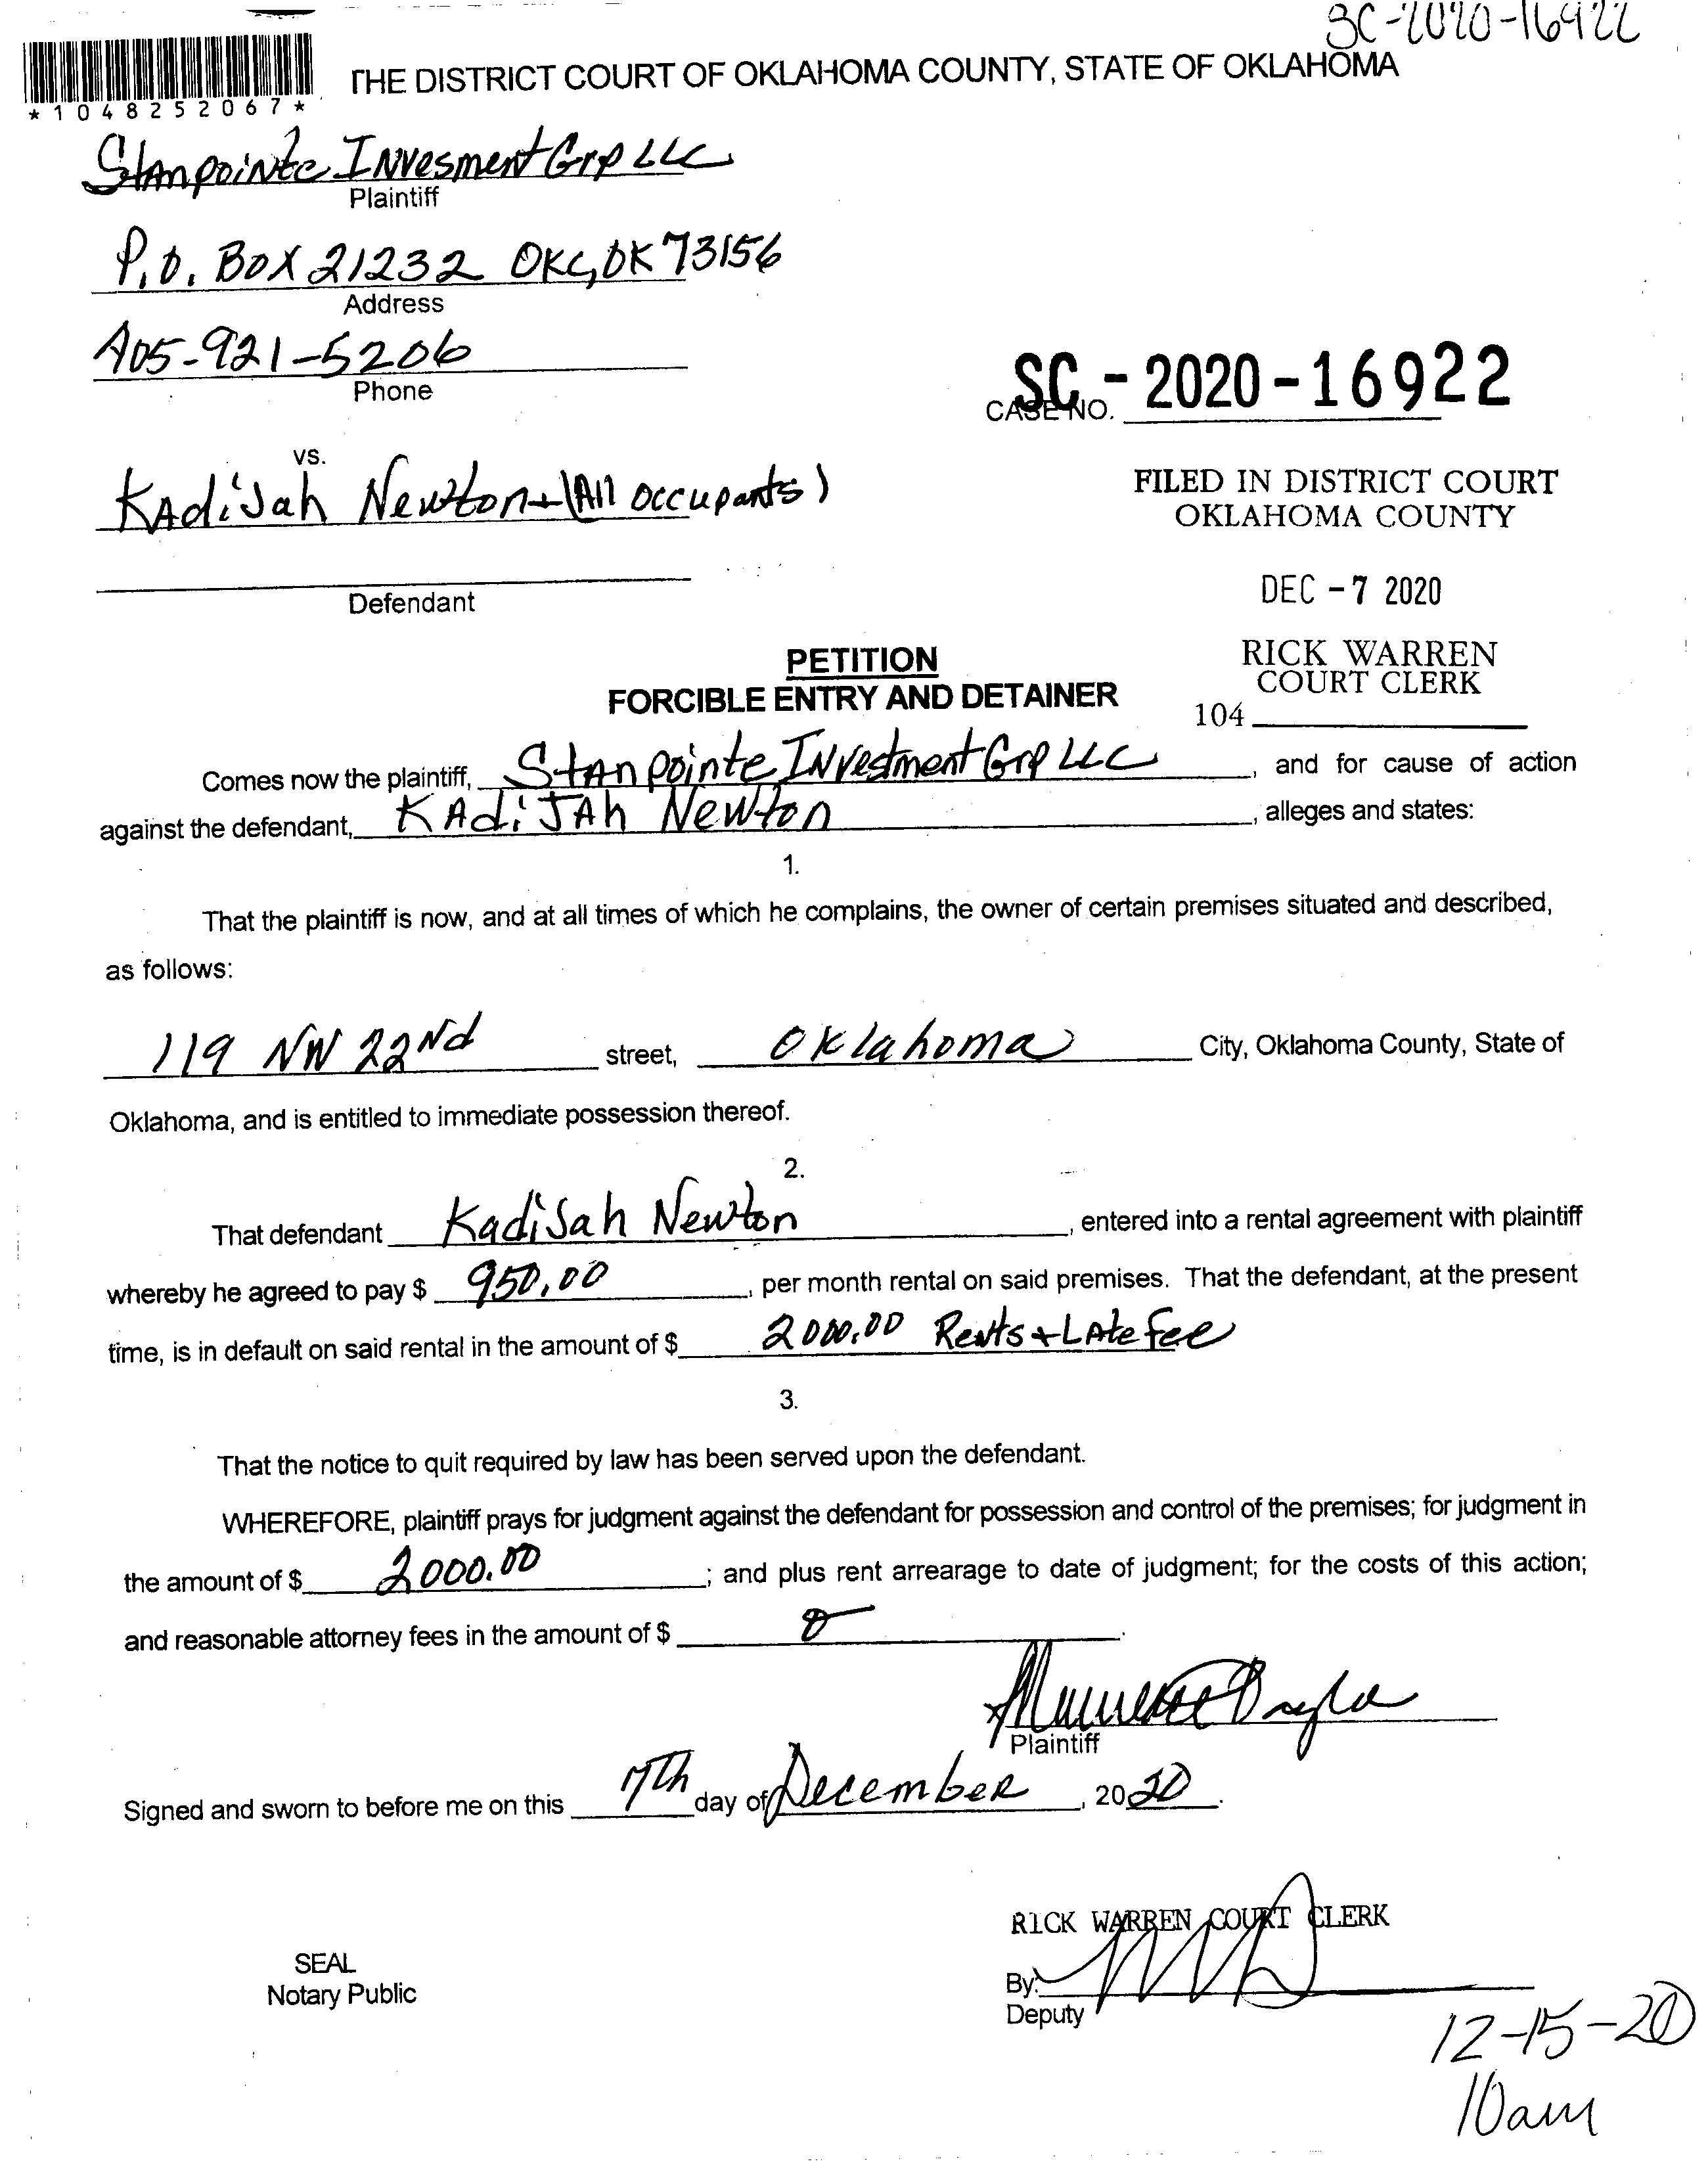 SC-2020-16922
THE DISTRICT COURT OF OKLAHOMA COUNTY, STATE OF OKLAHOMA
*1048252067*
Stanpointe INvesment Grp LLC
Plaintiff
P.O. BOX 21232 OKC, OK 73156
Address
405-921-5206
Phone
SC-2020-16922
CASE NO.
vs.
KAdiJah Newton + (All occupants)
FILED IN DISTRICT COURT
OKLAHOMA COUNTY
DEC -7 2020
Defendant
RICK WARREN
COURT CLERK
104
PETITION
FORCIBLE ENTRY AND DETAINER
Comes now the plaintiff, StANpointe INvestment Grp LLC, and for cause of action
against the defendant, KAdiJAh Newton, alleges and states:
1.
That the plaintiff is now, and at all times of which he complains, the owner of certain premises situated and described,
as follows:
119 NW 22Nd street, Oklahoma City, Oklahoma County, State of
Oklahoma, and is entitled to immediate possession thereof.
2.
That defendant KadiJah Newton, entered into a rental agreement with plaintiff
whereby he agreed to pay $ 950.00, per month rental on said premises. That the defendant, at the present
time, is in default on said rental in the amount of $ 2000.00 Rents + LAte fee
3.
That the notice to quit required by law has been served upon the defendant.
WHEREFORE, plaintiff prays for judgment against the defendant for possession and control of the premises; for judgment in
the amount of $ 2000.00; and plus rent arrearage to date of judgment; for the costs of this action;
and reasonable attorney fees in the amount of $ 0.
Plaintiff
Signed and sworn to before me on this 7th day of December, 2020.
RICK WARREN COURT CLERK
SEAL
Notary Public
By:
Deputy
12-15-20
10am